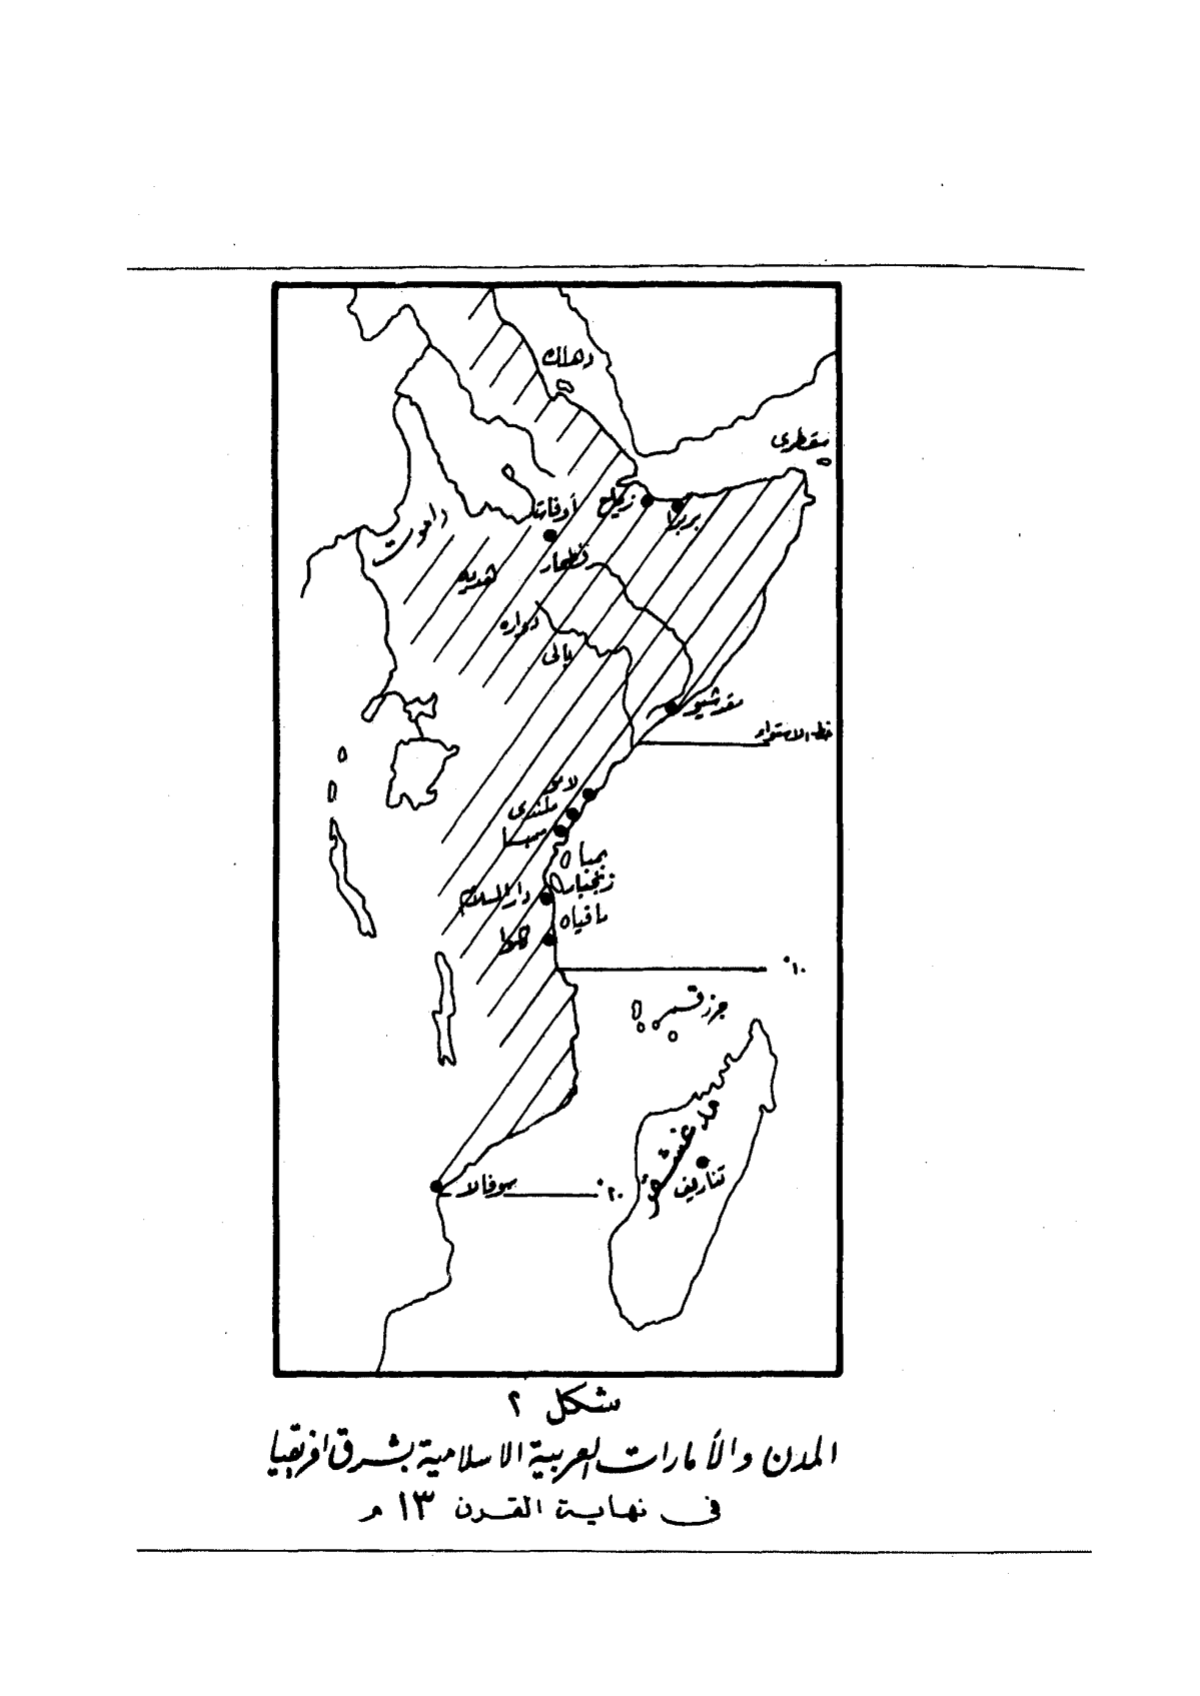 دهلك
سقطرى
زيلع
بربرا
أوفات
دامـوت
فطجار
هديه
دواره
بالى
مقدشيو
خط الاستواء
لامو
ملندى
ممبسا
بمبا
زنجبار
دار السلام
مافيا
كلوا
°١٠
جزر قمر
مدغشقر
تناريف
سوفالا
°٢٠
شكل ٢
المدن والأمارات العربية الاسلامية بشرق افريقيا
فى نهاية القرن ١٣ م